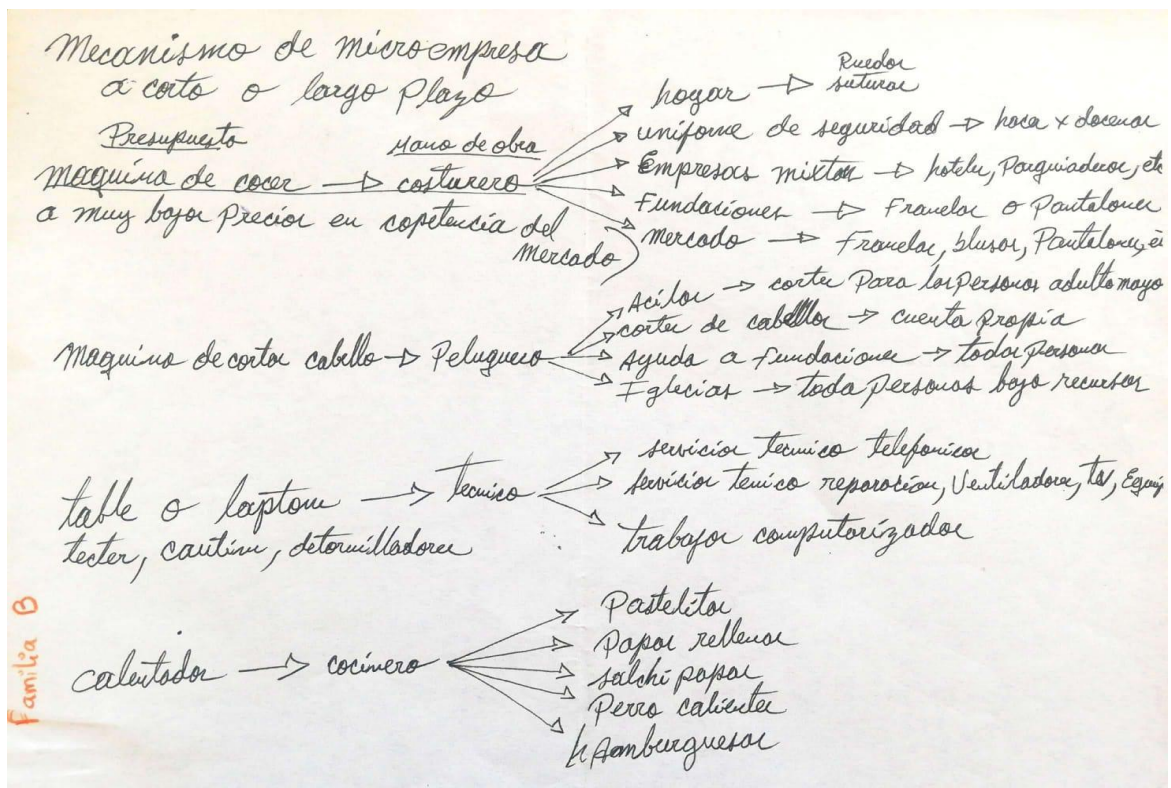 Mecanismo de microempresa
a corto o largo Plazo
Presupuesto
mano de obra
maquina de cocer → costurero
a muy bajor Precior en copetencia del
Mercado
hogar → Ruedor
suturar
uniforme de seguridad → hoca x docenar
Empresas mixtar → hoteler, Parquiaderor, etc
Fundaciones → Franelar o Pantaloner
mercado → Franelar, blusar, Pantaloner, e
maquina de cortar cabello → Peluquero
Acilor → corter Para las Personas adulto mayo
corter de cabellor → cuenta propia
ayuda a Fundacioner → todar personar
Iglecias → toda Personas bajo recursor
table o laptom → tecnico
tecter, cautim, detornilladorer
servicior tecnico telefonicor
servicior tenico reparacion, Ventiladorer, tv, Equip
trabajor computarizador
Familia B
calentador → cocinero
Pastelitor
Papar rellenar
salchi papar
Perro calienter
hamburguesar